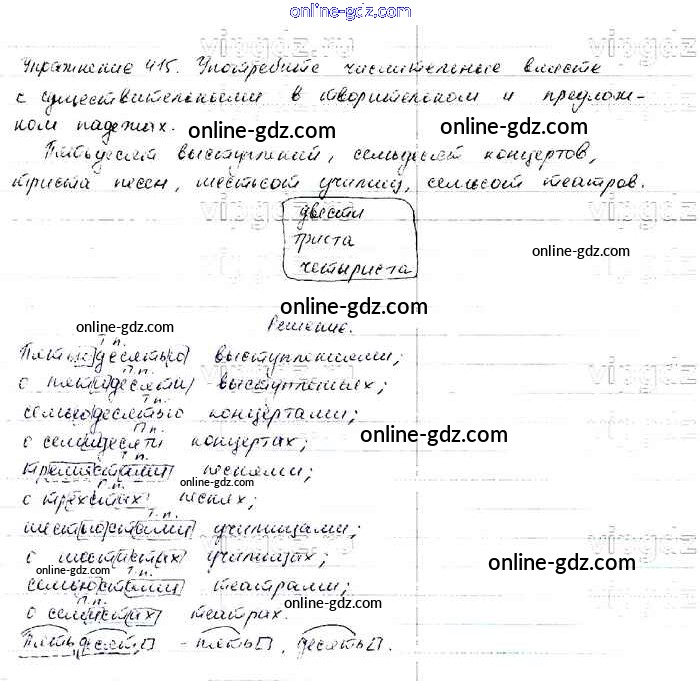 online-gdz.com
Упражнение 415. Употребите числительные вместе
с существительными в творительном и предлож-
ном падежах.
online-gdz.com
online-gdz.com
Пятьдесят выступлений, семьдесят концертов,
триста песен, шестьсот училищ, семьсот театров.
двести
триста
четыриста
online-gdz.com
online-gdz.com
Решение.
online-gdz.com
Т.п.
Пятьюдесятью выступлениями;
П.п.
о пятидесяти выступлениях;
Т.п.
семьюдесятью концертами;
П.п.
о семидесяти концертах;
online-gdz.com
Т.п.
тремястами песнями;
П.п.
online-gdz.com
о трёхстах песнях;
Т.п.
шестьюстами училищами;
П.п.
о шестистах училищах;
online-gdz.com
online-gdz.com
Т.п.
семьюстами театрами;
online-gdz.com
П.п.
о семистах театрах.
Пятьдесят - пять, десять.
vipgdz
vipgdz
vipgdz
vipgdz
vipgdz
vipgdz